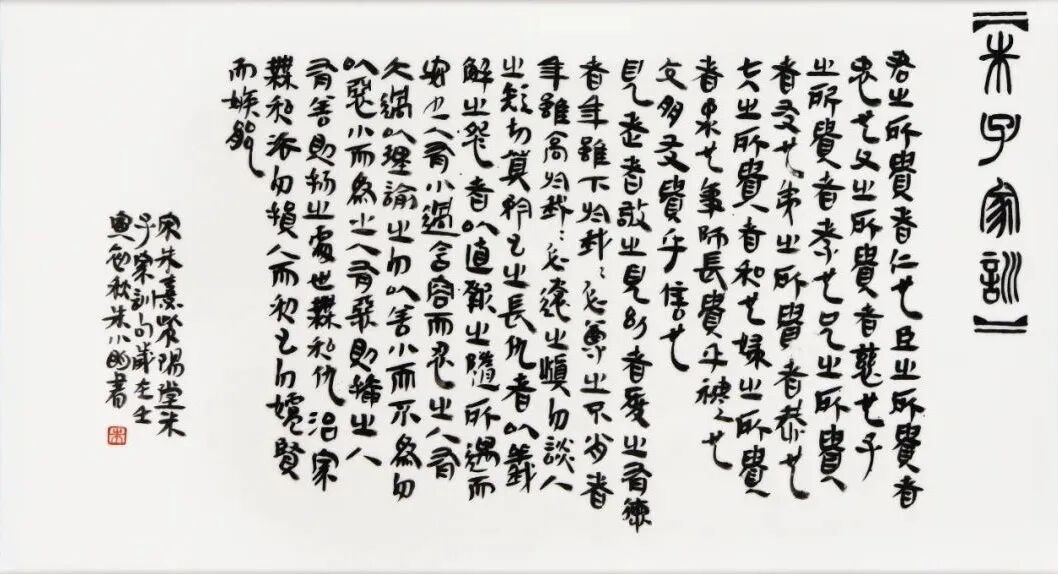 【朱子家訓】
君之所貴者仁也臣之所貴者
忠也父之所貴者慈也子
之所貴者孝也兄之所貴
者友也弟之所貴者恭也
夫之所貴者和也婦之所貴
者柔也事師長貴乎禮也
交朋友貴乎信也
見老者敬之見幼者愛之有德
者年雖下於我〻必尊之不肖者
年雖高於我〻必遠之慎勿談人
之短切莫矜己之長仇者以義
解之怨者以直報之隨所遇而
安之人有小過含容而忍之人有
大過以理諭之勿以善小而不為勿
以惡小而為之人有惡則掩之人
有善則揚之處世無私仇治家
無私法勿損人而利己勿妒賢
而嫉能
宋朱熹紫陽堂朱
子家訓句歲在壬
寅秋朱小書
朱